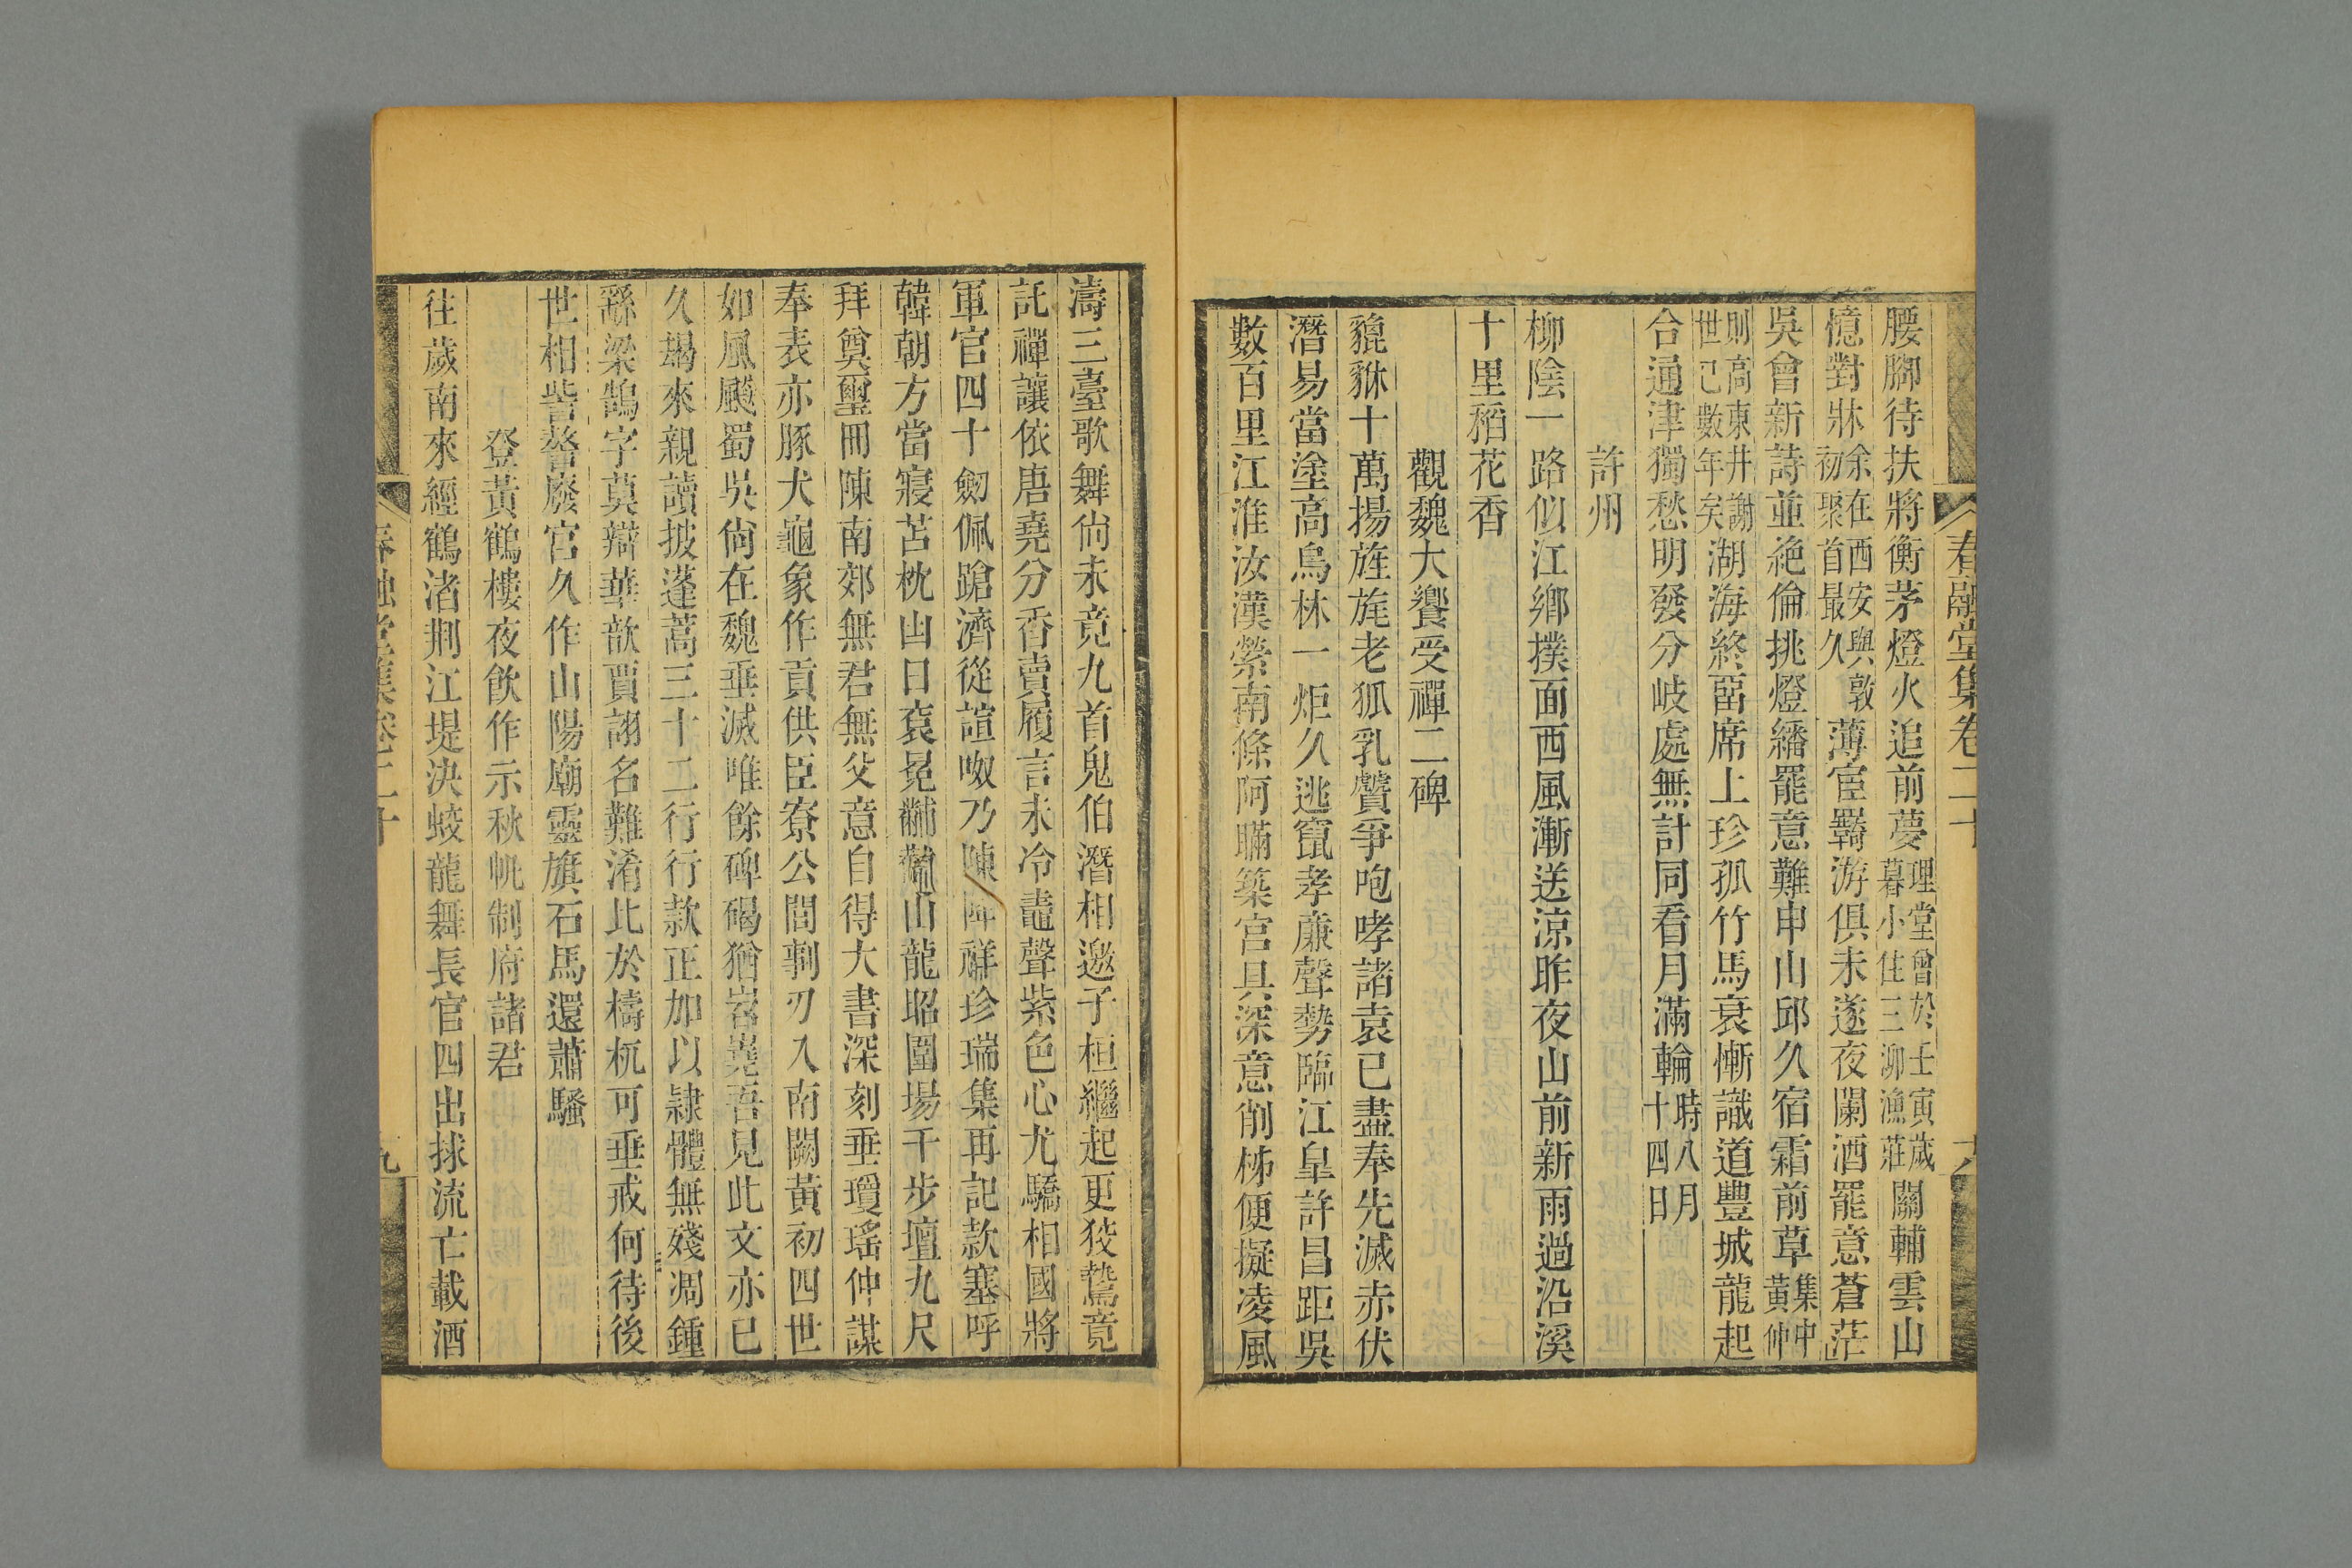 春融堂集卷二十
腰腳待扶將衡茅燈火追前夢理堂曾於壬寅歲暮小住三泖漁莊關輔雲山
憶對牀余在西安與敦初聚首最久薄宦羇游俱未遂夜闌酒罷意蒼茫
吳會新詩並絶倫挑燈繙罷意難申山邱久宿霜前草集中黃仲
則高東井謝世已數年矣湖海終畱席上珍孤竹馬衰慚識道豐城龍起
合通津獨愁明發分岐處無計同看月滿輪時八月十四日
許州
柳陰一路似江鄉撲面西風漸送涼昨夜山前新雨過沿溪
十里稻花香
觀魏大饗受禪二碑
貔貅十萬揚旌旄老狐乳贙爭咆哮諸袁已盡奉先滅赤伏
潛易當塗高烏林一炬久逃竄孝廉聲勢臨江皐許昌距吳
數百里江淮汝漢縈南條阿瞞築宮具深意削柹便擬凌風
濤三臺歌舞尙未竟九首鬼伯潛相邀子桓繼起更狡鷙竟
託禪讓依唐堯分香賣履言未冷鼃聲紫色心尤驕相國將
軍官四十劒佩蹌濟從諠呶乃陳祥珍瑞集再記款塞呼
韓朝方當寢苫枕凷日袞冕黼黻山龍昭圍場千步壇九尺
拜奠璽冊陳南郊無君無父意自得大書深刻垂瓊瑤仲謀
奉表亦豚犬龜象作貢供臣寮公閭剚刃入南闕黃初四世
如風飇蜀吳尙在魏垂滅唯餘碑碣猶岧嶤吾見此文亦已
久朅來親讀披蓬蒿三十二行行款正加以隷體無殘凋鍾
繇梁鵠字莫辯華歆賈詡名難淆比於檮杌可垂戒何待後
世相訾謷廢宮久作山陽廟靈旗石馬還蕭騷
登黃鶴樓夜飮作示秋帆制府諸君
往歲南來經鶴渚荆江堤決蛟龍舞長官四出捄流亡載酒
春融堂集卷二十
九